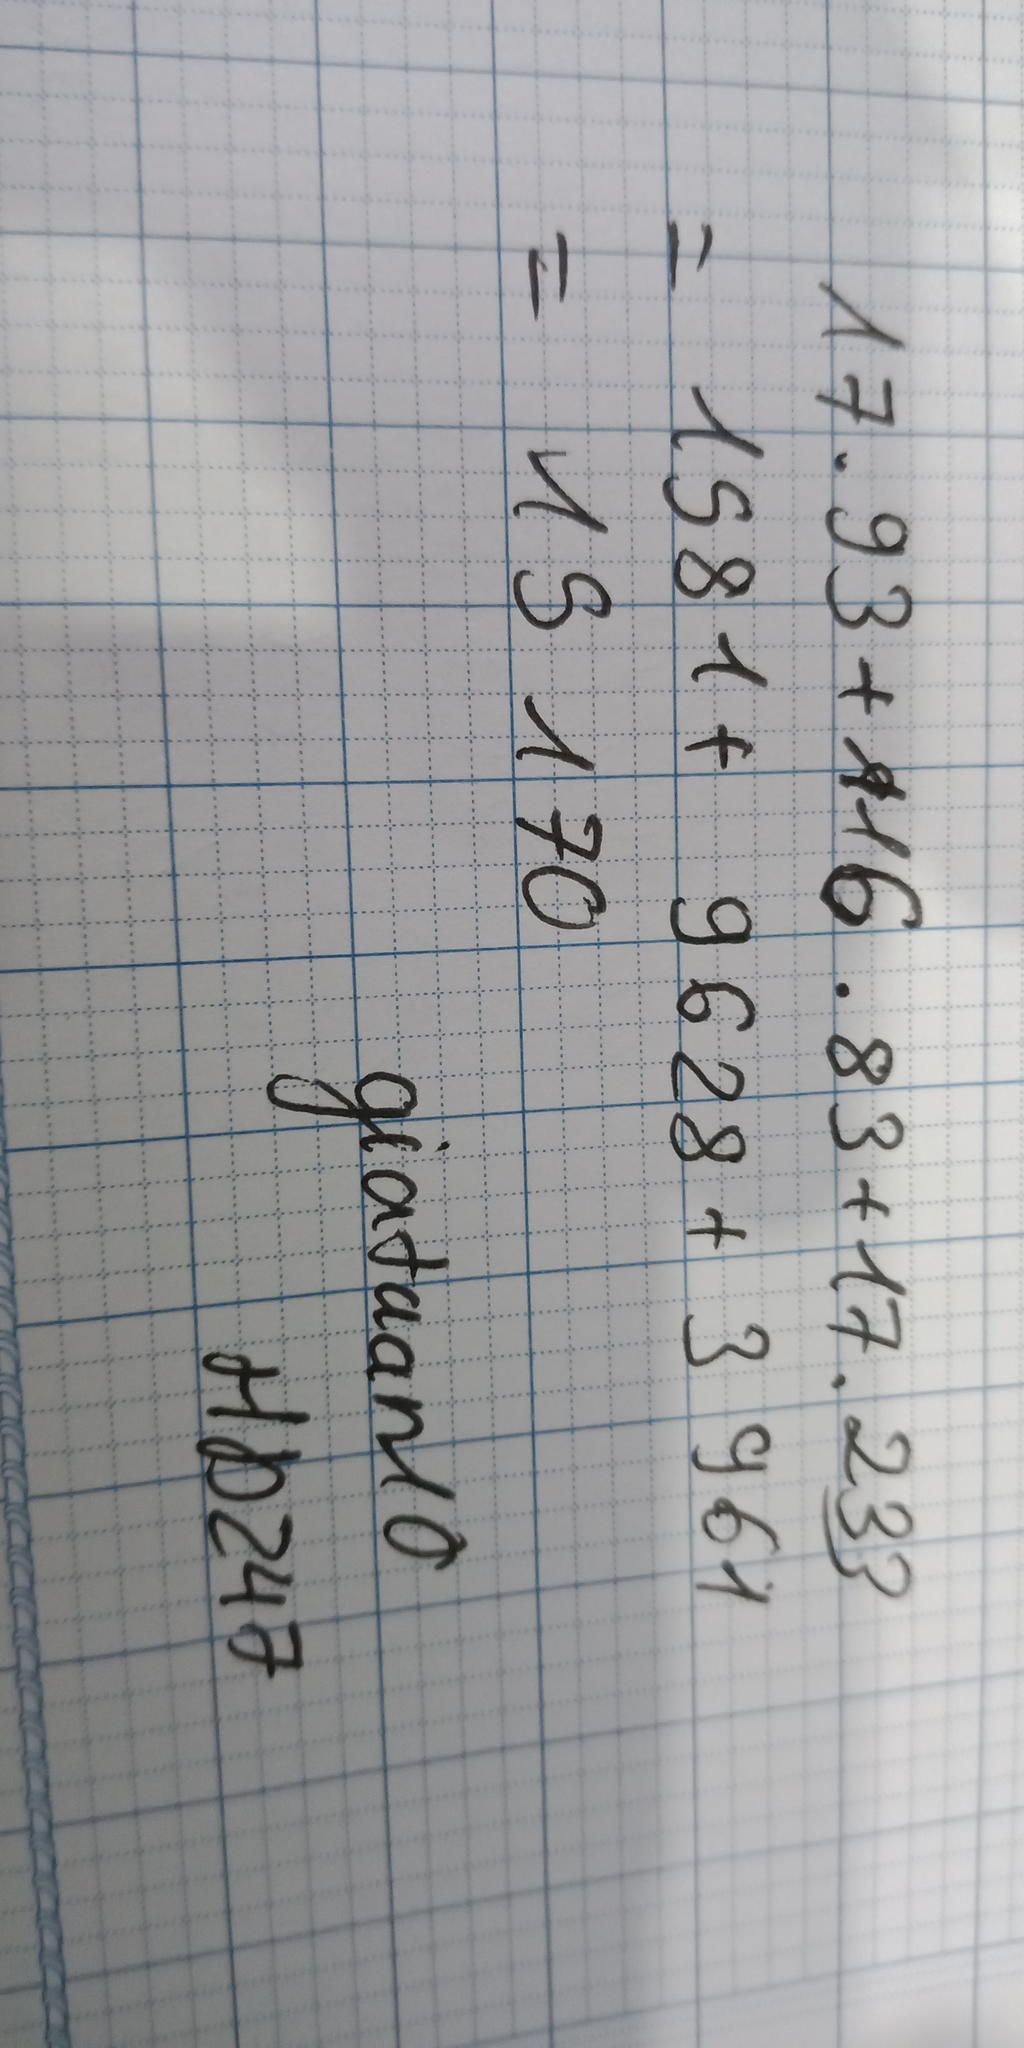 17.93+116.83+17.233
= 1581+ 9628+ 3961
= 15 170
giataan10
HD247